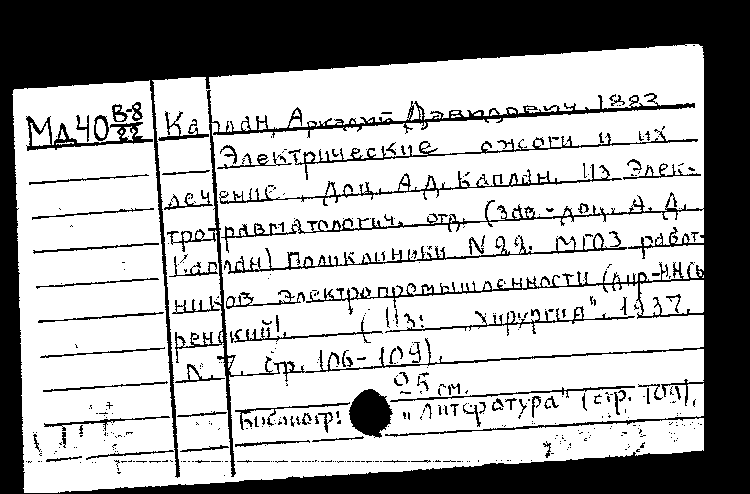 Мд40 В-8/22 Каплан, Аркадий Давидович. 1883
Электрические ожоги и их
лечение. Доц. А.Д. Каплан. Из Элек-
тротравматологич. отд. (Зав.-доц. А. Д.
Каплан) Поликлиники №22. МГОЗ работ-
ников электропромышленности (дир-
ренский). (Из: „Хирургия". 1937.
N. 7. Стр. 106-109).
25 см.
Библиогр: „Литература" (стр. 109).